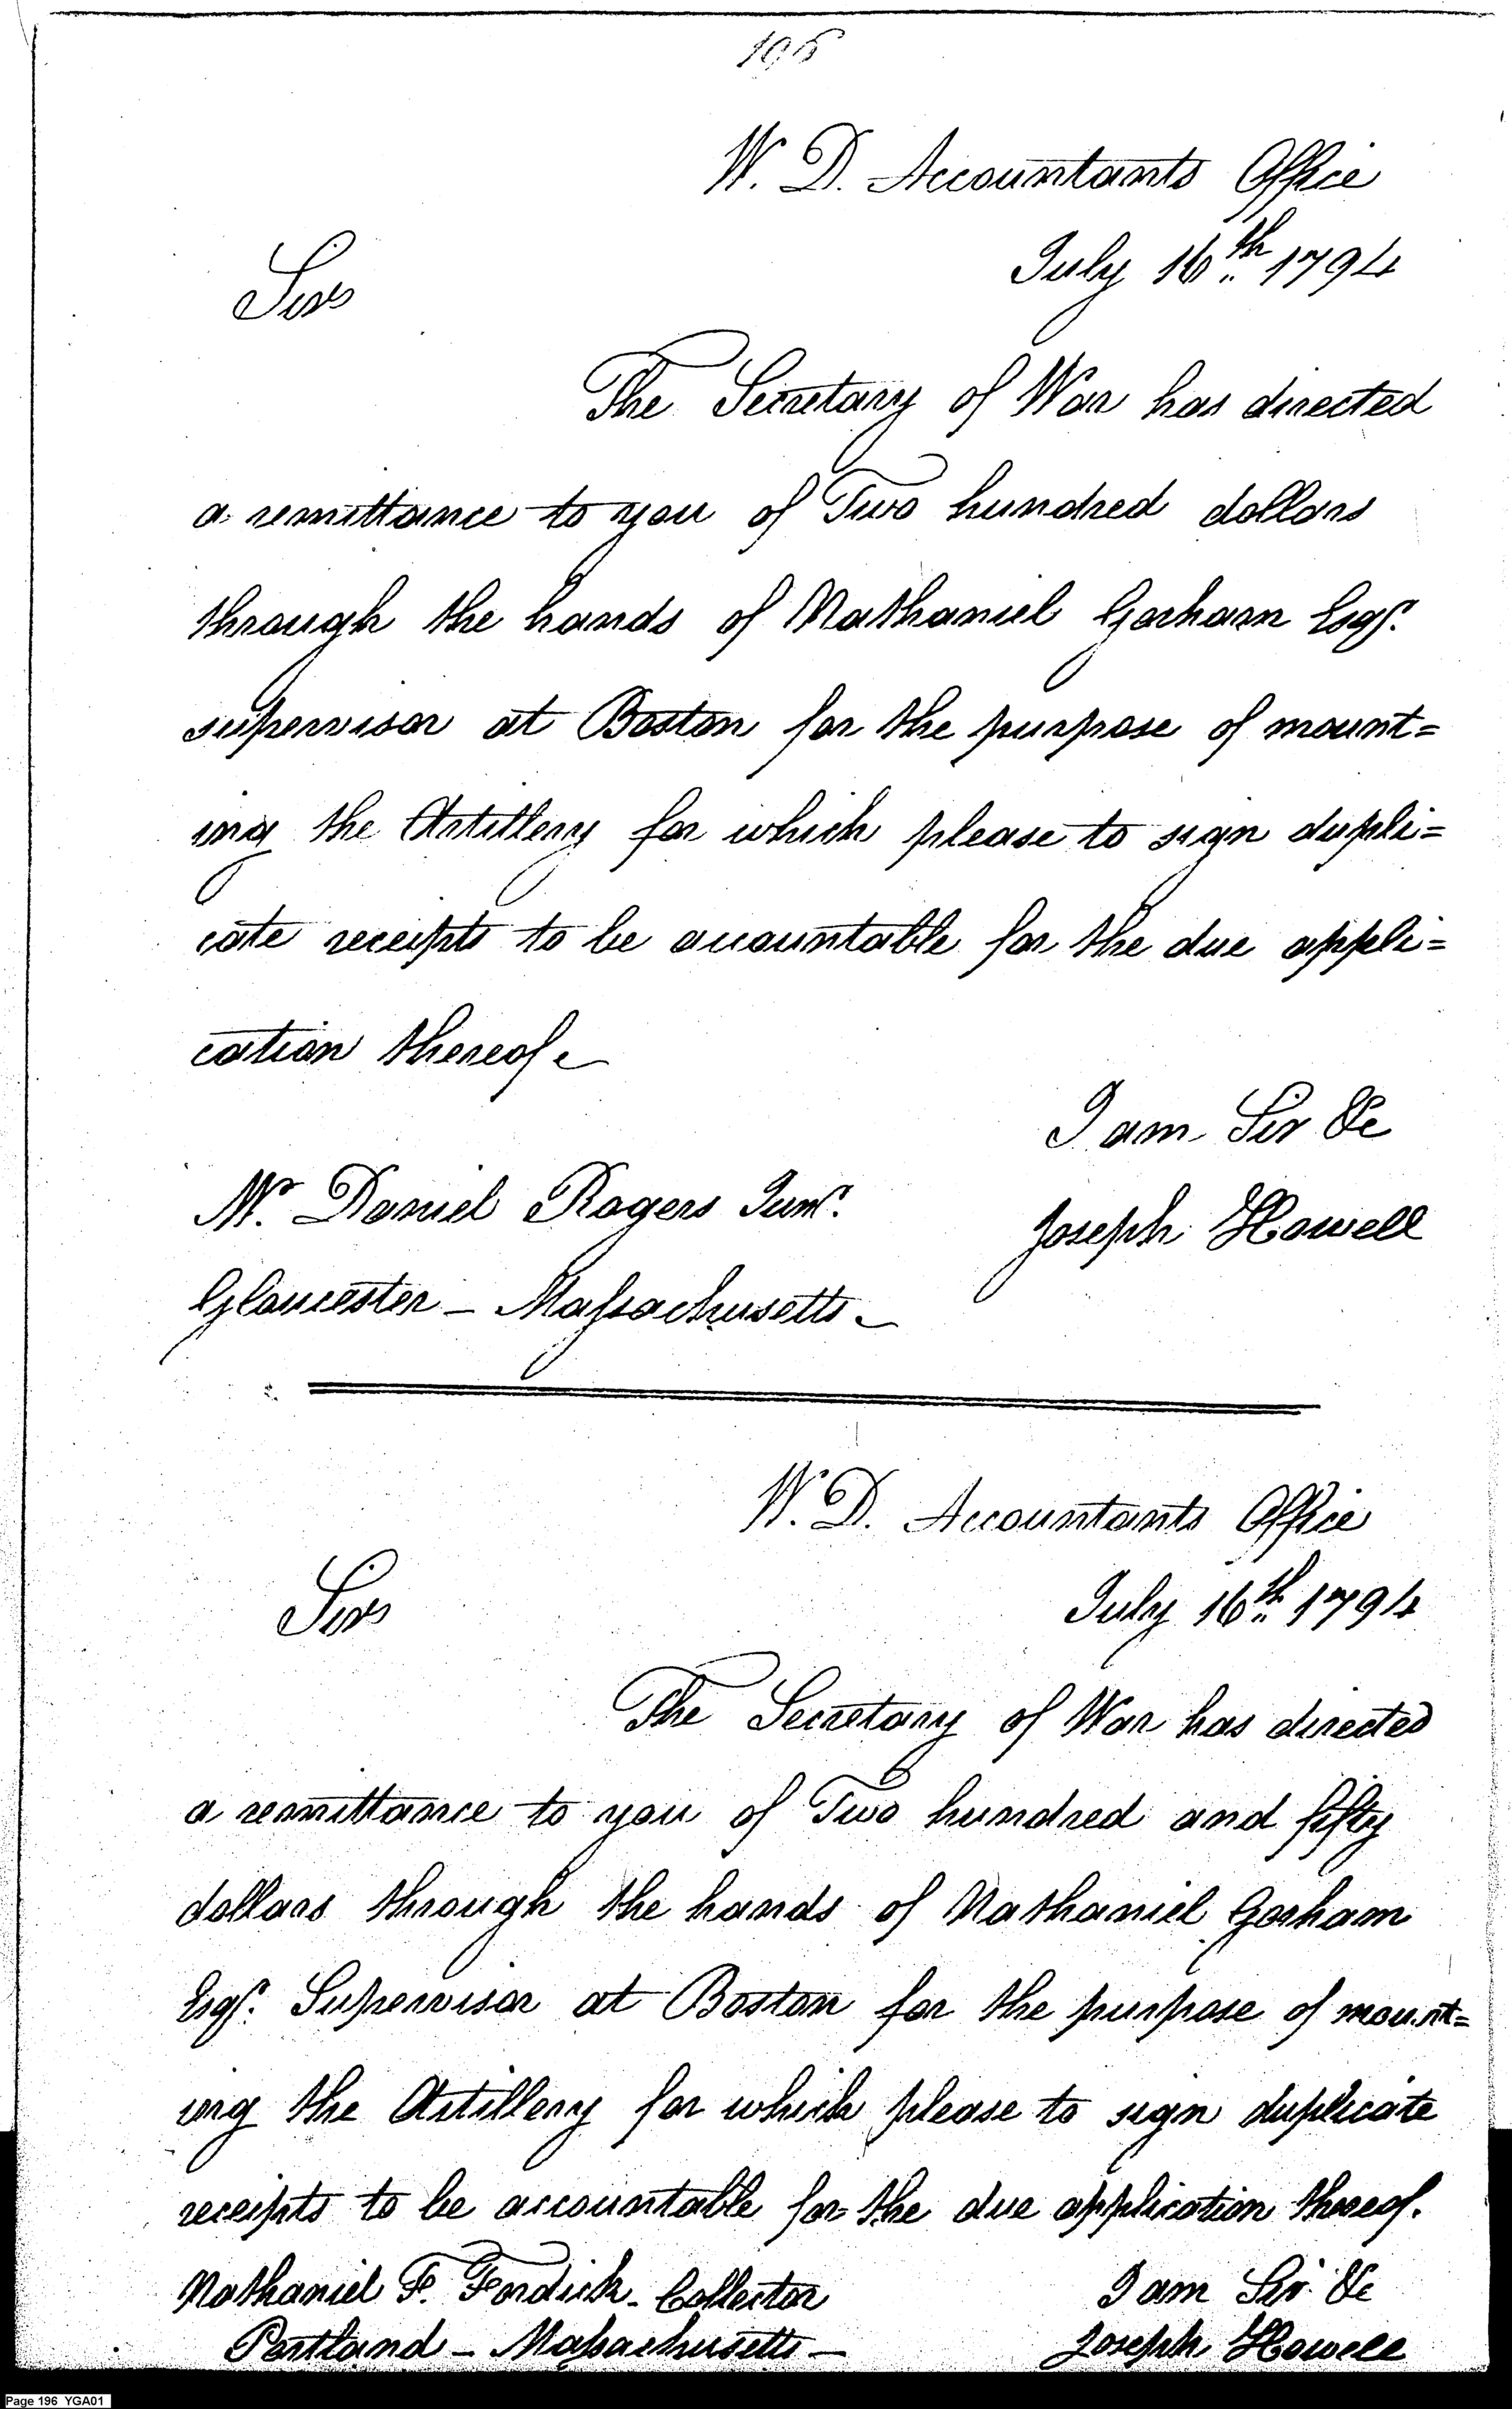 196
W. D. Accountants Office
July 16th 1794
Sir
The Secretary of War has directed
a remittance to you of Two hundred dollars
through the hands of Nathaniel Gorham Esqr.
supervisor at Boston for the purpose of mount=
ing the Artillery for which please to sign dupli=
cate receipts to be accountable for the due appli=
cation thereof
I am Sir &c
Mr. Daniel Rogers Junr.
Joseph Howell
Gloucester - Massachusetts
W. D. Accountants Office
July 16th 1794
Sir
The Secretary of War has directed
a remittance to you of Two hundred and fifty
dollars through the hands of Nathaniel Gorham
Esqr. Supervisor at Boston for the purpose of mount=
ing the Artillery for which please to sign duplicate
receipts to be accountable for the due application thereof.
Nathaniel F. Fordick - Collector
I am Sir &c
Portland - Massachusetts -
Joseph Howell
Page 196 YGA01